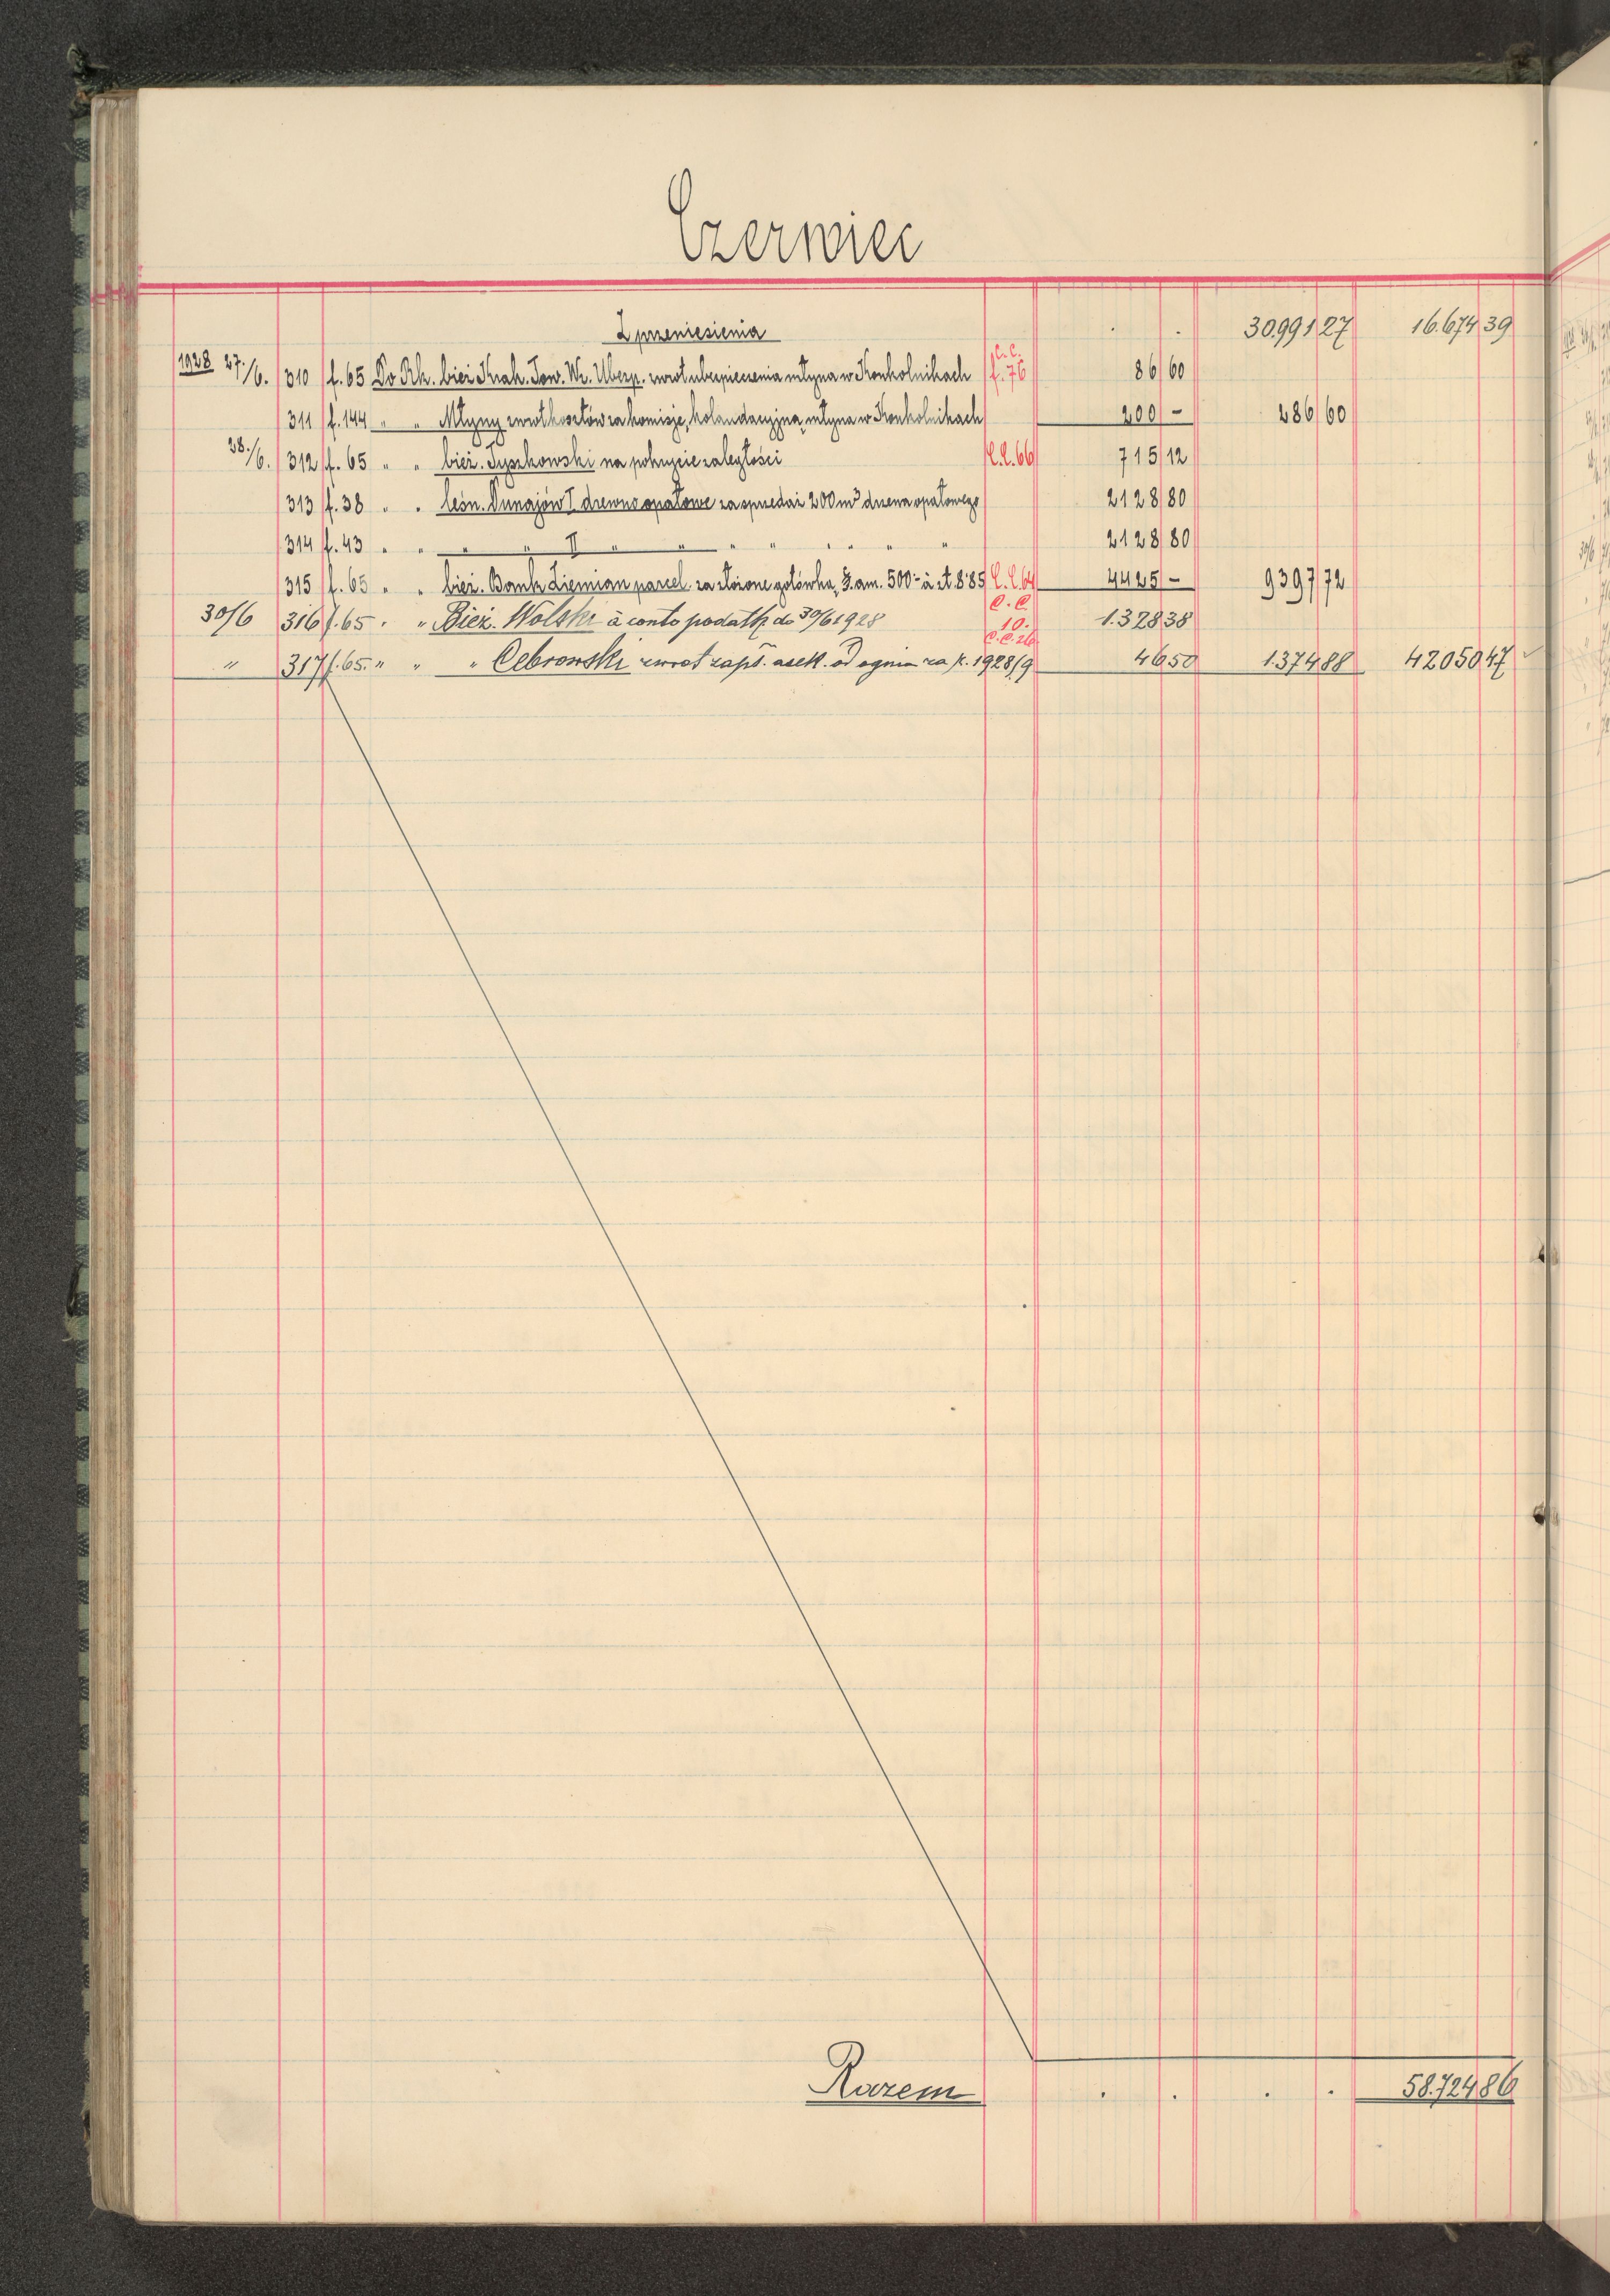 Czerwiec
Z przeniesienia . . 30.991 27 16.674 39
1928 27./6. 310 f. 65 Do Rk. bież. Krak. Tow. Wz. Ubezp. zwrot ubezpieczenia młyna w Konkolnikach C.C. f. 76 86 60
311 f. 144 " " Młyny zwrot kosztów za komisję kolaudacyjną młyna w Konkolnikach 200 - 286 60
28./6. 312 f. 65 " " bież. Tyszkowski na pokrycie zaległości C.C. 66 715 12
313 f. 38 " " leśn. Dunajów I drewno opałowe za sprzedaż 200 m³ drzewa opałowego 2128 80
314 f. 43 " " " " II " " " " " " " 2128 80
315 f. 65 " " bież. Bank Ziemian parcel. za złożone gotówką, am. 500- à zł. 8'85 C.C. 64 4425 - 9397 72
30/6 316 f. 65 " " Bież. Wolski à conto podatk. do 30/6 1928 C.C. 10. 1.328 38
" 317 f. 65 " " " Cebrowski zwrot zapł. asek. od ognia za r. 1928/9 C.C. 26 46 50 1.374 88 42050 47
Razem . . . . 58.724 86